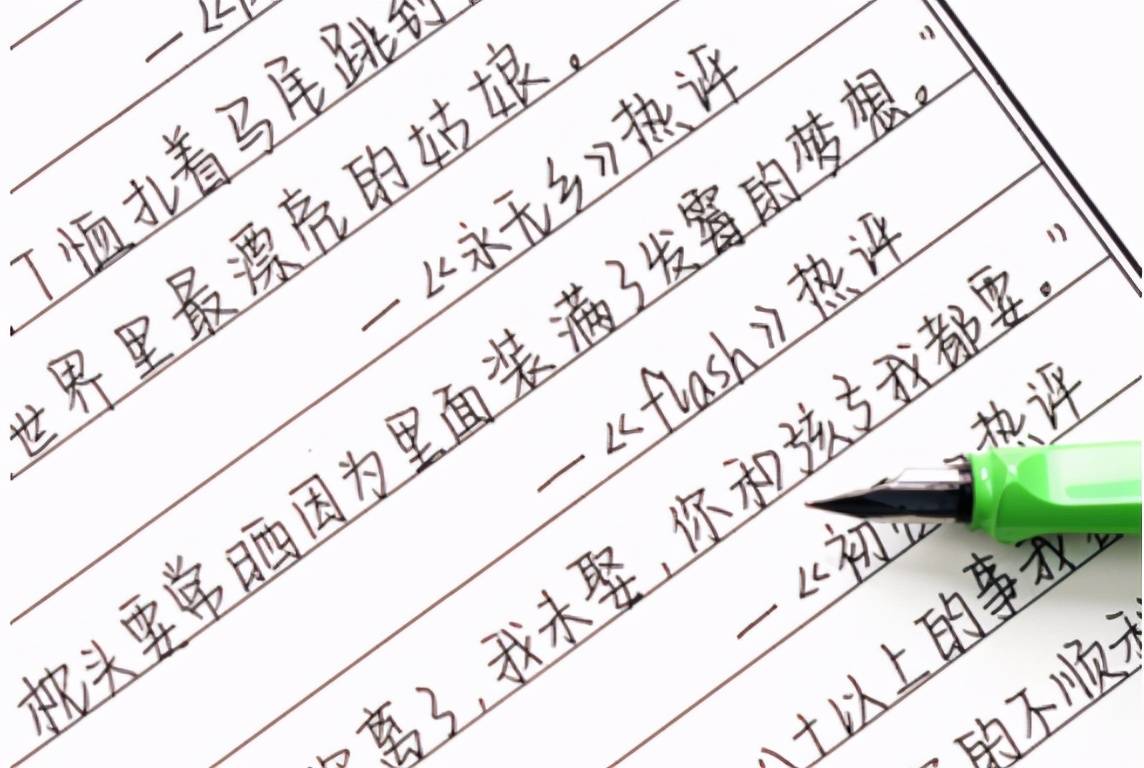 —《
T恤扎着马尾跳到
世界里最漂亮的姑娘。
—《永无乡》热评
枕头要常晒因为里面装满了发霉的梦想。”
—《flash》热评
离了,我未娶,你和孩子我都要。”
—《初 热评
八十以上的事我
的不顺利